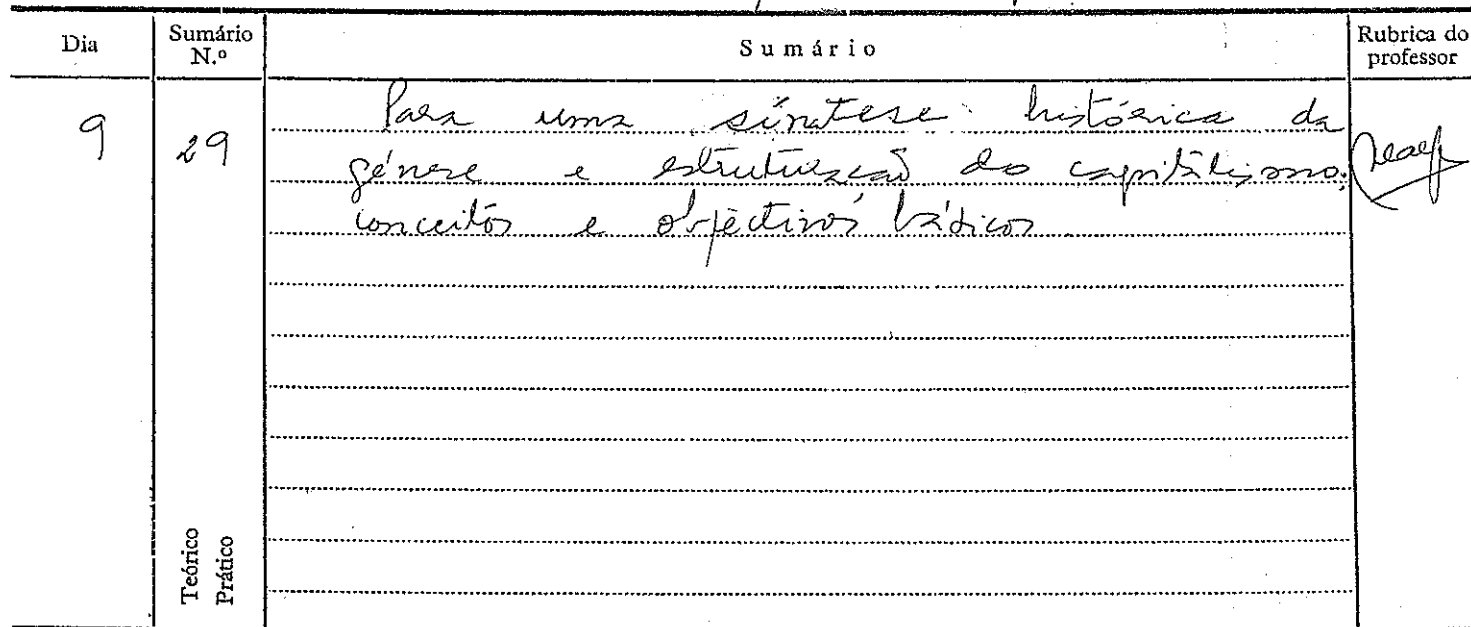 Dia Sumário N.º Sumário Rubrica do professor
9 29 Para uma síntese histórica da
génese e estruturação do capitalismo:
conceitos e objectivos básicos
Teórico
Prático